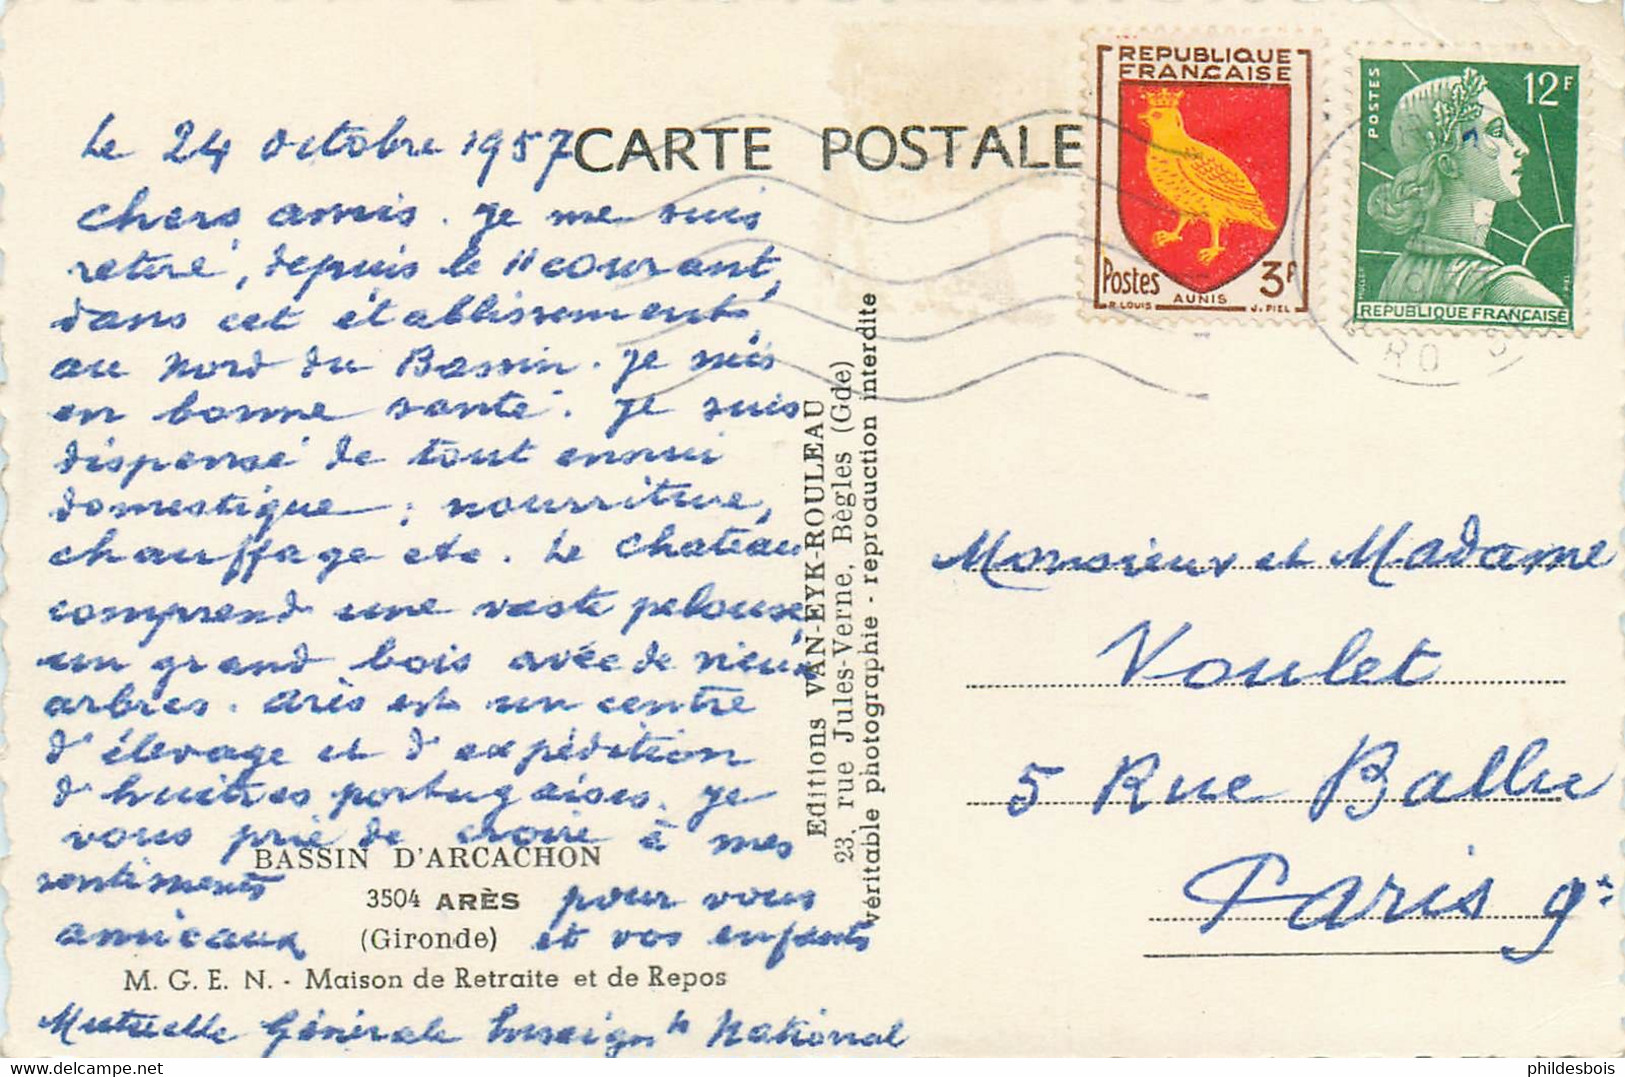 CARTE POSTALE
REPUBLIQUE
FRANÇAISE
Postes 3F
R. LOUIS AUNIS J. PIEL
POSTES 12F
MULLER PIEL
REPUBLIQUE FRANÇAISE
Le 24 octobre 1957
chers amis. Je me suis
retiré, depuis le 11 courant,
dans cet établissement,
au nord du Bassin. Je suis
en bonne santé. Je suis
dispensé de tout ennui
domestique ; nourriture,
chauffage etc. Le chateau
comprend une vaste pelouse,
un grand bois avec de vieux
arbres. Arès est un centre
d'élevage et d'expédition
d'huitres portugaises. Je
vous prie de croire à mes
sentiments
amicaux
pour vous
et vos enfants
BASSIN D'ARCACHON
3504 ARÈS
(Gironde)
M. G. E. N. - Maison de Retraite et de Repos
Mutuelle Générale Enseign^t National
Editions VAN-EYK-ROULEAU
23, rue Jules-Verne, Bègles (Gde)
véritable photographie - reproduction interdite
Monsieur et Madame
Voulet
5 Rue Ballu
Paris 9e
www.delcampe.net
phildesbois